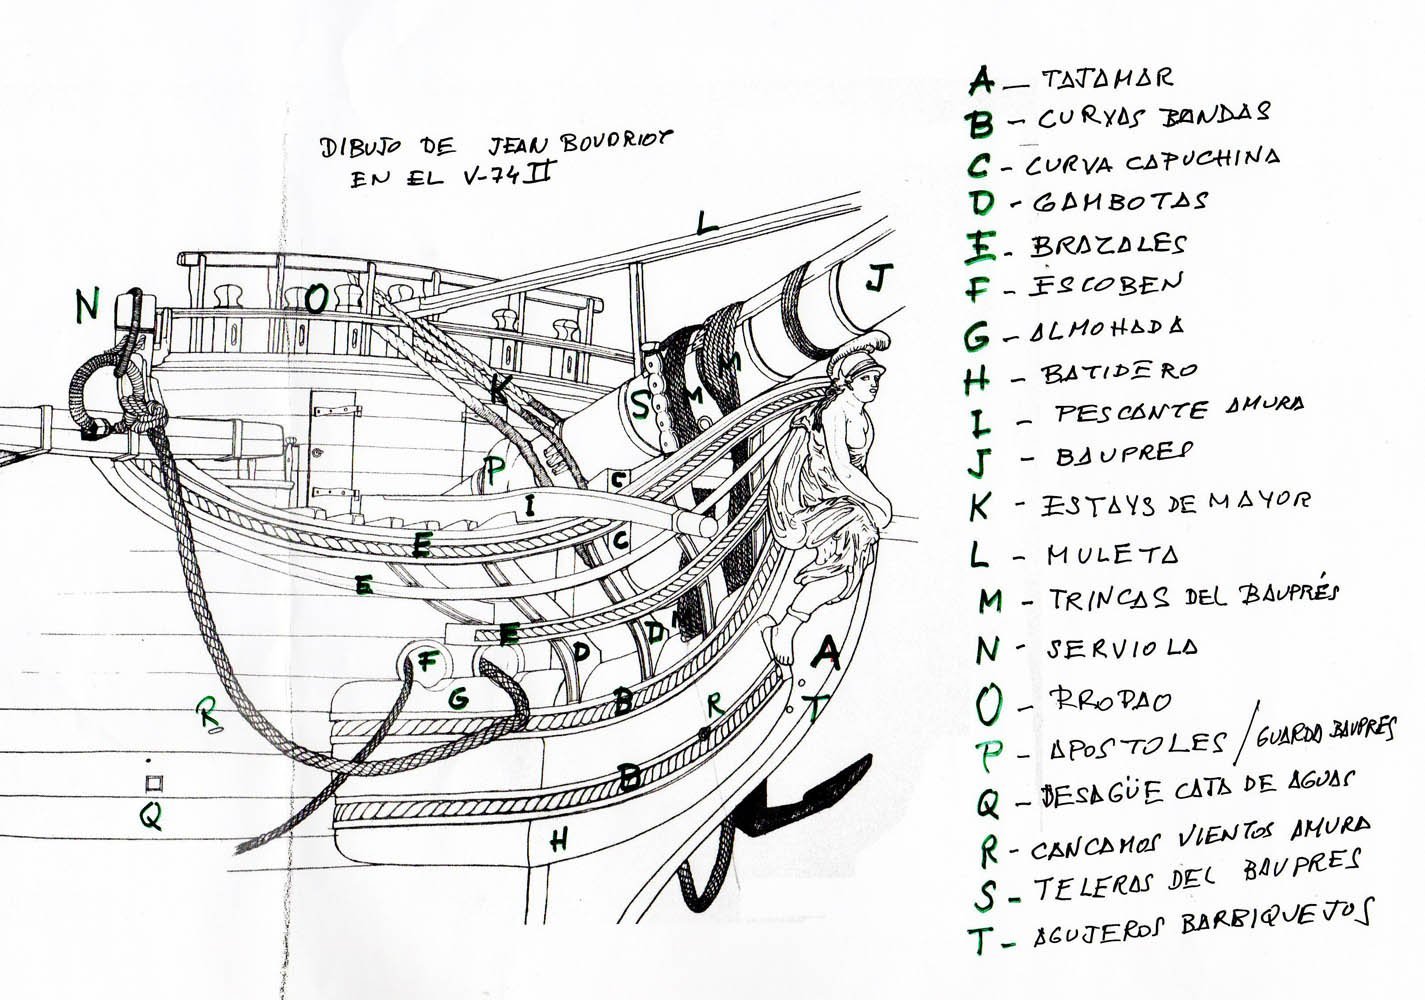 DIBUJO DE JEAN BOUDRIOT
EN EL V-74 II
A - TAJAMAR
B - CURVAS BANDAS
C - CURVA CAPUCHINA
D - GAMBOTAS
E - BRAZALES
F - ESCOBEN
G - ALMOHADA
H - BATIDERO
I - PESCANTE AMURA
J - BAUPRES
K - ESTAYS DE MAYOR
L - MULETA
M - TRINCAS DEL BAUPRÉS
N - SERVIOLA
O - PROPAO
P - APOSTOLES / GUARDA BAUPRES
Q - DESAGÜE CAJA DE AGUAS
R - CANCAMOS VIENTOS AMURA
S - TELERAS DEL BAUPRES
T - AGUJEROS BARBIQUEJOS
L
J
N
O
K
S
M
M
P
C
I
E
C
E
M
E
D
D
F
A
G
B
R
T
R
B
Q
H